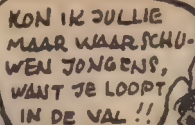 KON IK JULLIE
MAAR WAARSCHU-
WEN JONGENS,
WANT JE LOOPT
IN DE VAL!!